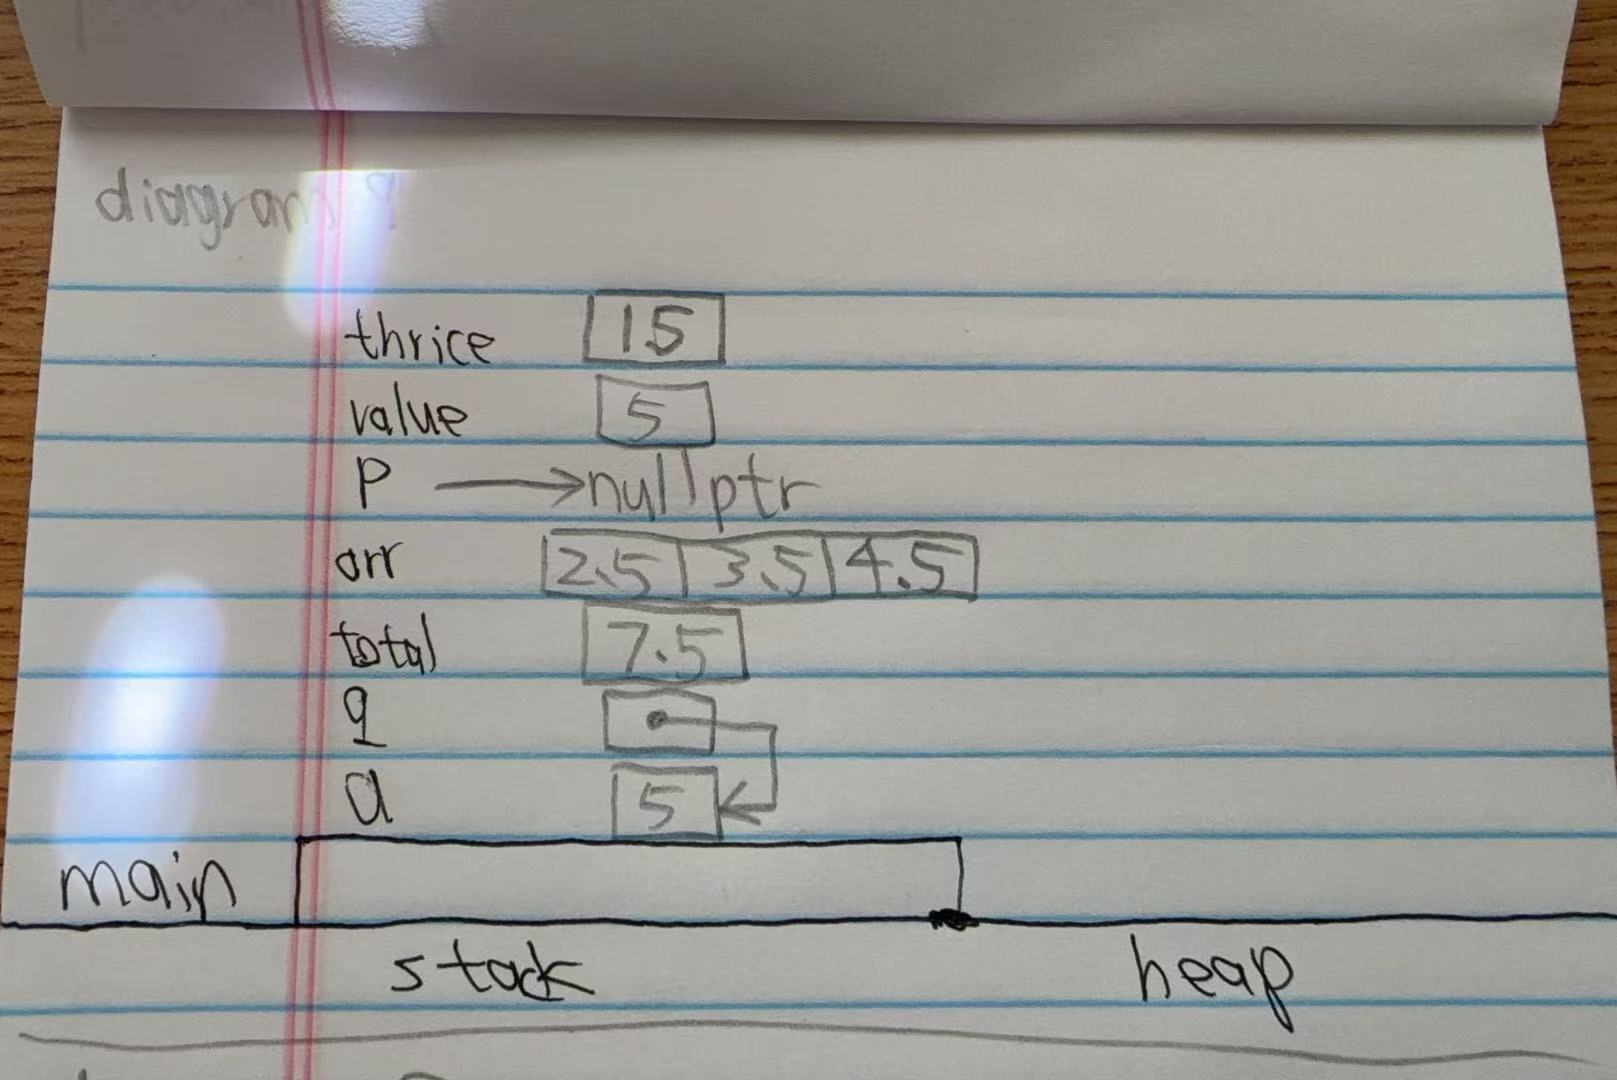 diagram 9
thrice 15
value 5
p nullptr
arr 2.5 3.5 4.5
total 7.5
q
a 5
main
stack heap